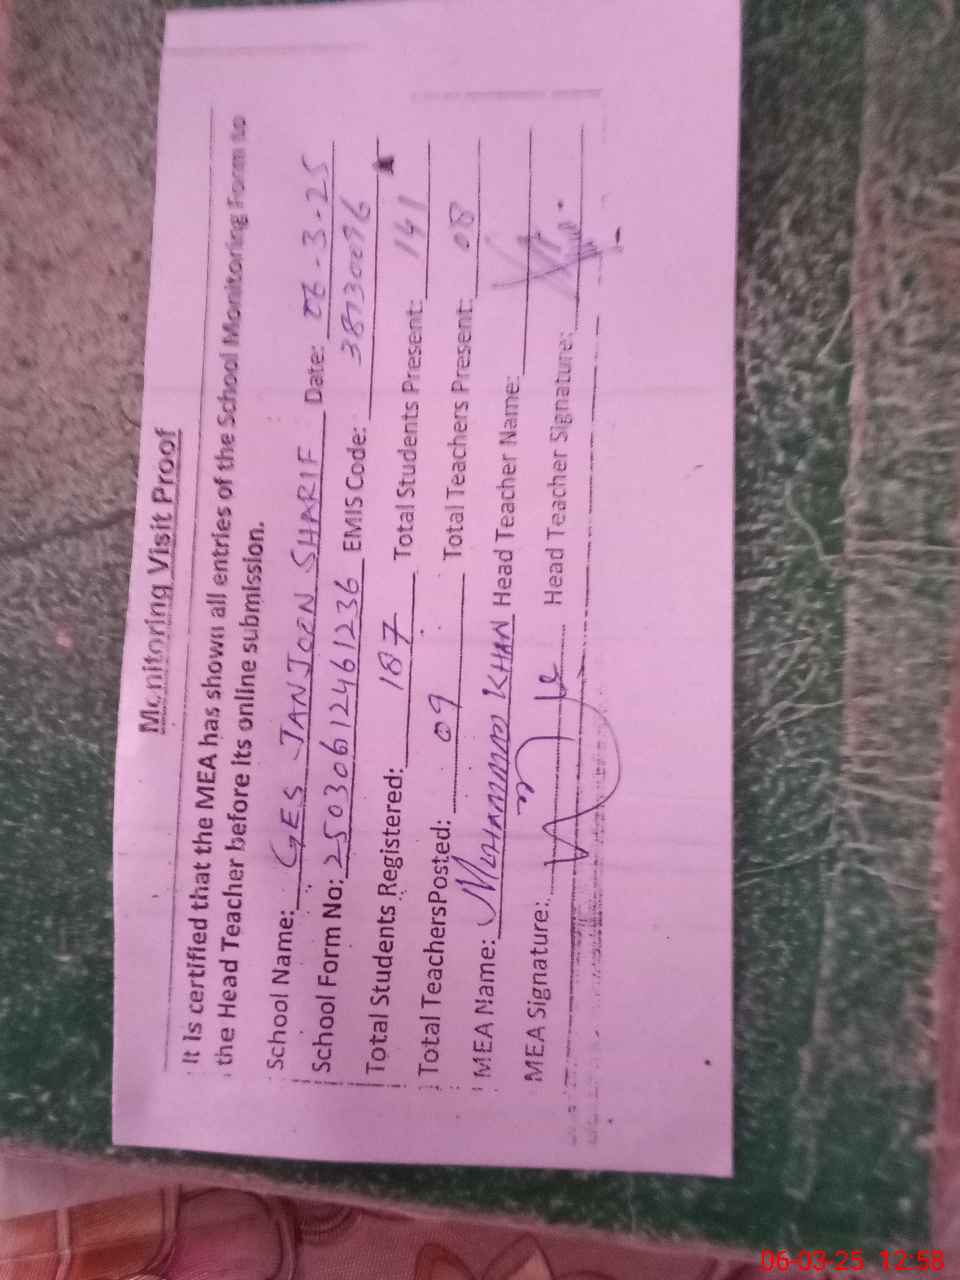 Monitoring Visit Proof
It is certified that the MEA has shown all entries of the School Monitoring Form to
the Head Teacher before its online submission.
School Name: GES JANJOON SHARIF Date: 06-3-25
School Form No: 25030612461236 EMIS Code: 38730096
Total Students Registered: 187 Total Students Present: 141
Total TeachersPosted: 09 Total Teachers Present: 08
MEA Name: MUHAMMAD KHAN Head Teacher Name:
MEA Signature: Head Teacher Signature:
06-03-25 12:58